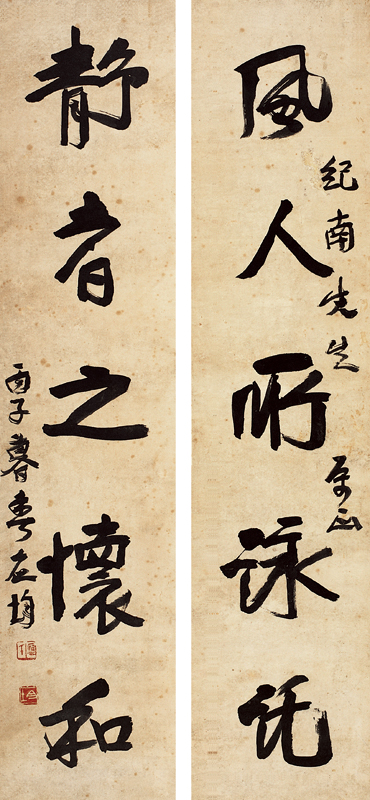 紀南先生 正
風人所詠託
靜者之懷和
丙子暮春